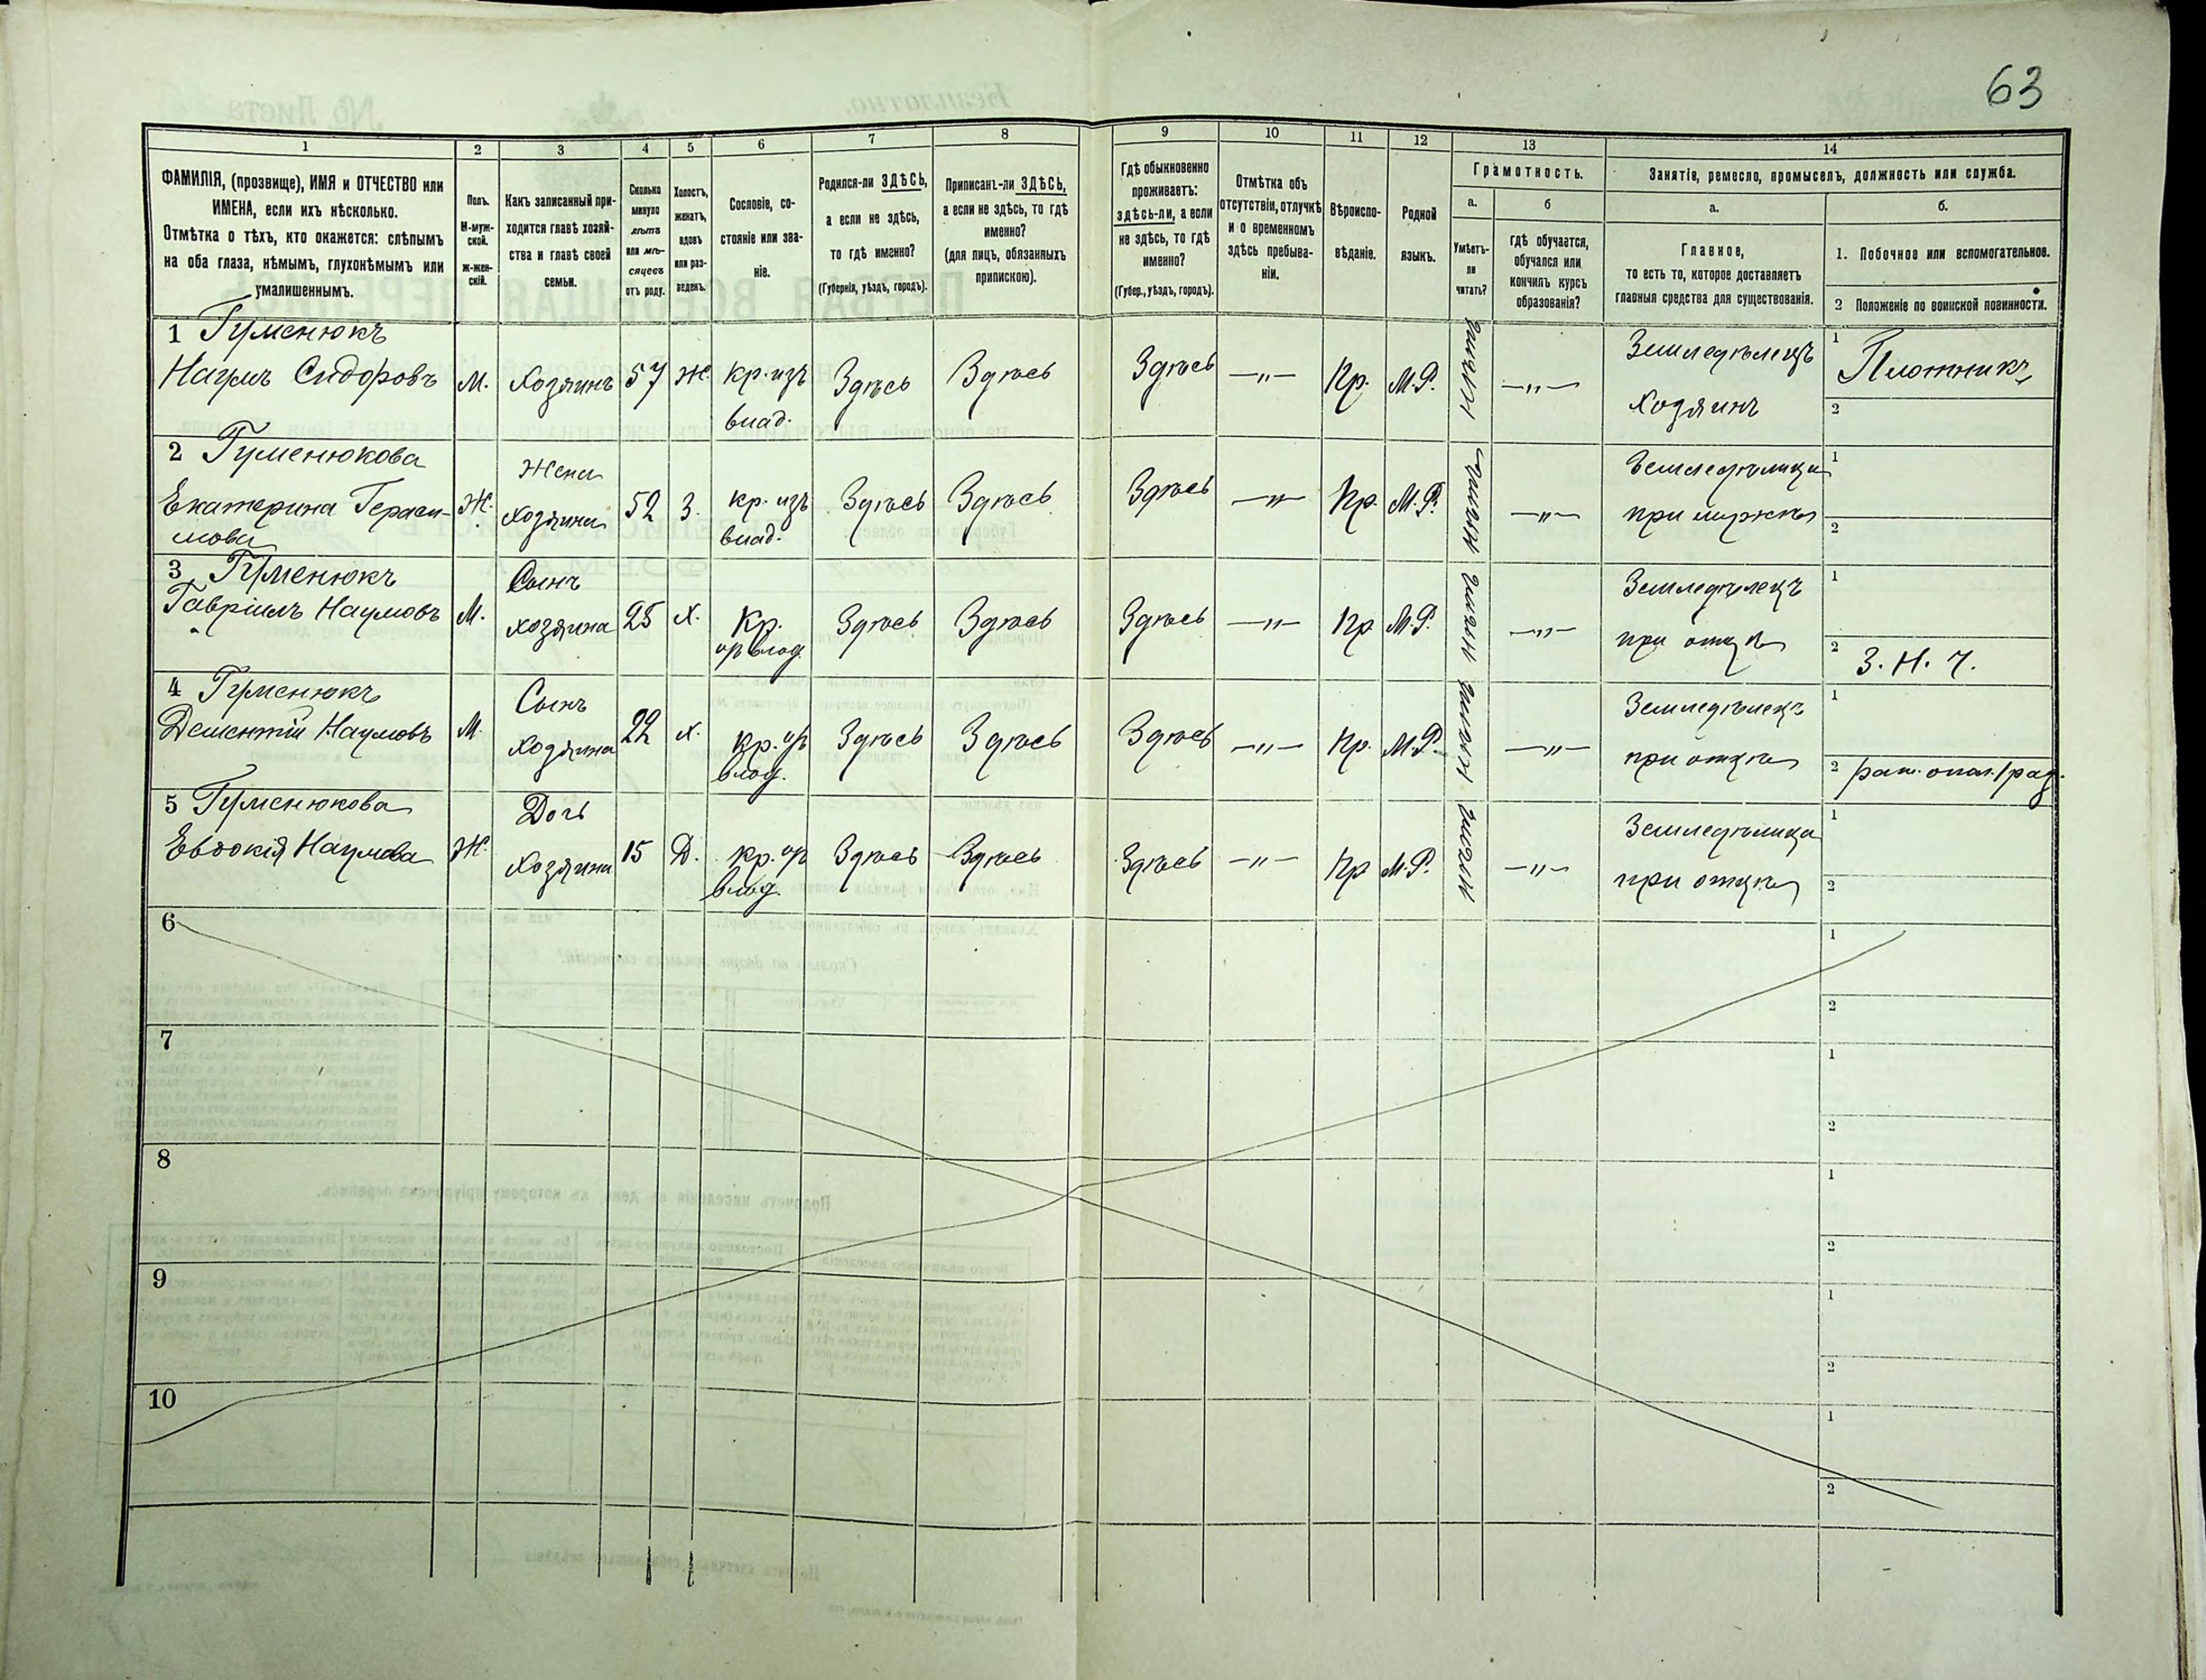 63
1 2 3 4 5 6 7 8 9 10 11 12 13 14
ФАМИЛІЯ, (прозвище), ИМЯ и ОТЧЕСТВО или
ИМЕНА, если ихъ нѣсколько.
Отмѣтка о тѣхъ, кто окажется: слѣпымъ
на оба глаза, нѣмымъ, глухонѣмымъ или
умалишеннымъ.
Полъ.
М-муж-
ской.
Ж-жен-
скій.
Какъ записанный при-
ходится главѣ хозяй-
ства и главѣ своей
семьи.
Сколько
минуло
лѣтъ
или мѣ-
сяцевъ
отъ роду.
Холостъ,
женатъ,
вдовъ
или раз-
веденъ.
Сословіе, со-
стояніе или зва-
ніе.
Родился-ли ЗДѢСЬ,
а если не здѣсь,
то гдѣ именно?
(Губернія, уѣздъ, городъ).
Приписанъ-ли ЗДѢСЬ,
а если не здѣсь, то гдѣ
именно?
(для лицъ, обязанныхъ
припискою).
Гдѣ обыкновенно
проживаетъ:
здѣсь-ли, а если
не здѣсь, то гдѣ
именно?
(Губер., уѣздъ, городъ).
Отмѣтка объ
отсутствіи, отлучкѣ
и о временномъ
здѣсь пребыва-
ніи.
Вѣроиспо-
вѣданіе.
Родной
языкъ.
Грамотность.
а.
Умѣетъ-
ли
читать?
б
гдѣ обучается,
обучался или
кончилъ курсъ
образованія?
Занятіе, ремесло, промыселъ, должность или служба.
а.
Главное,
то есть то, которое доставляетъ
главныя средства для существованія.
б.
1. Побочное или вспомогательное.
2 Положеніе по воинской повинности.
1 Гуменюкъ
Наумъ Сидоровъ М. Хозяинъ 57 Ж. Кр. изъ Здѣсь Здѣсь Здѣсь —„— Пр. М.Р. —„— Земледѣлецъ 1 Плотникъ
влад. Хозяинъ 2
2 Гуменюкова Жена Земледѣлица 1
Екатерина Гераси- Ж. хозяина 52 З. кр. изъ Здѣсь Здѣсь Здѣсь —„— Пр. М.Р. —„— при мужѣ
мова влад. 2
3 Гуменюкъ Сынъ Земледѣлецъ 1
Гавріилъ Наумовъ М. хозяина 25 Х. Кр. Здѣсь Здѣсь Здѣсь —„— Пр М.Р. —„— при отцѣ
влад. 2 З. Н. Ч.
4 Гуменюкъ Сынъ Земледѣлецъ 1
Дементій Наумовъ М. Хозяина 22 х. Кр. Здѣсь Здѣсь Здѣсь —„— Пр. М.Р. —„— при отцѣ
влад. 2 рат. опол.
5 Гуменюкова Дочь Земледѣлица 1
Евдокія Наумова Ж. Хозяина 15 Д. Кр. Здѣсь Здѣсь Здѣсь —„— Пр М.Р. —„— при отцѣ
влад. 2
6 1
2
7 1
2
8 1
2
9 1
2
10 1
2